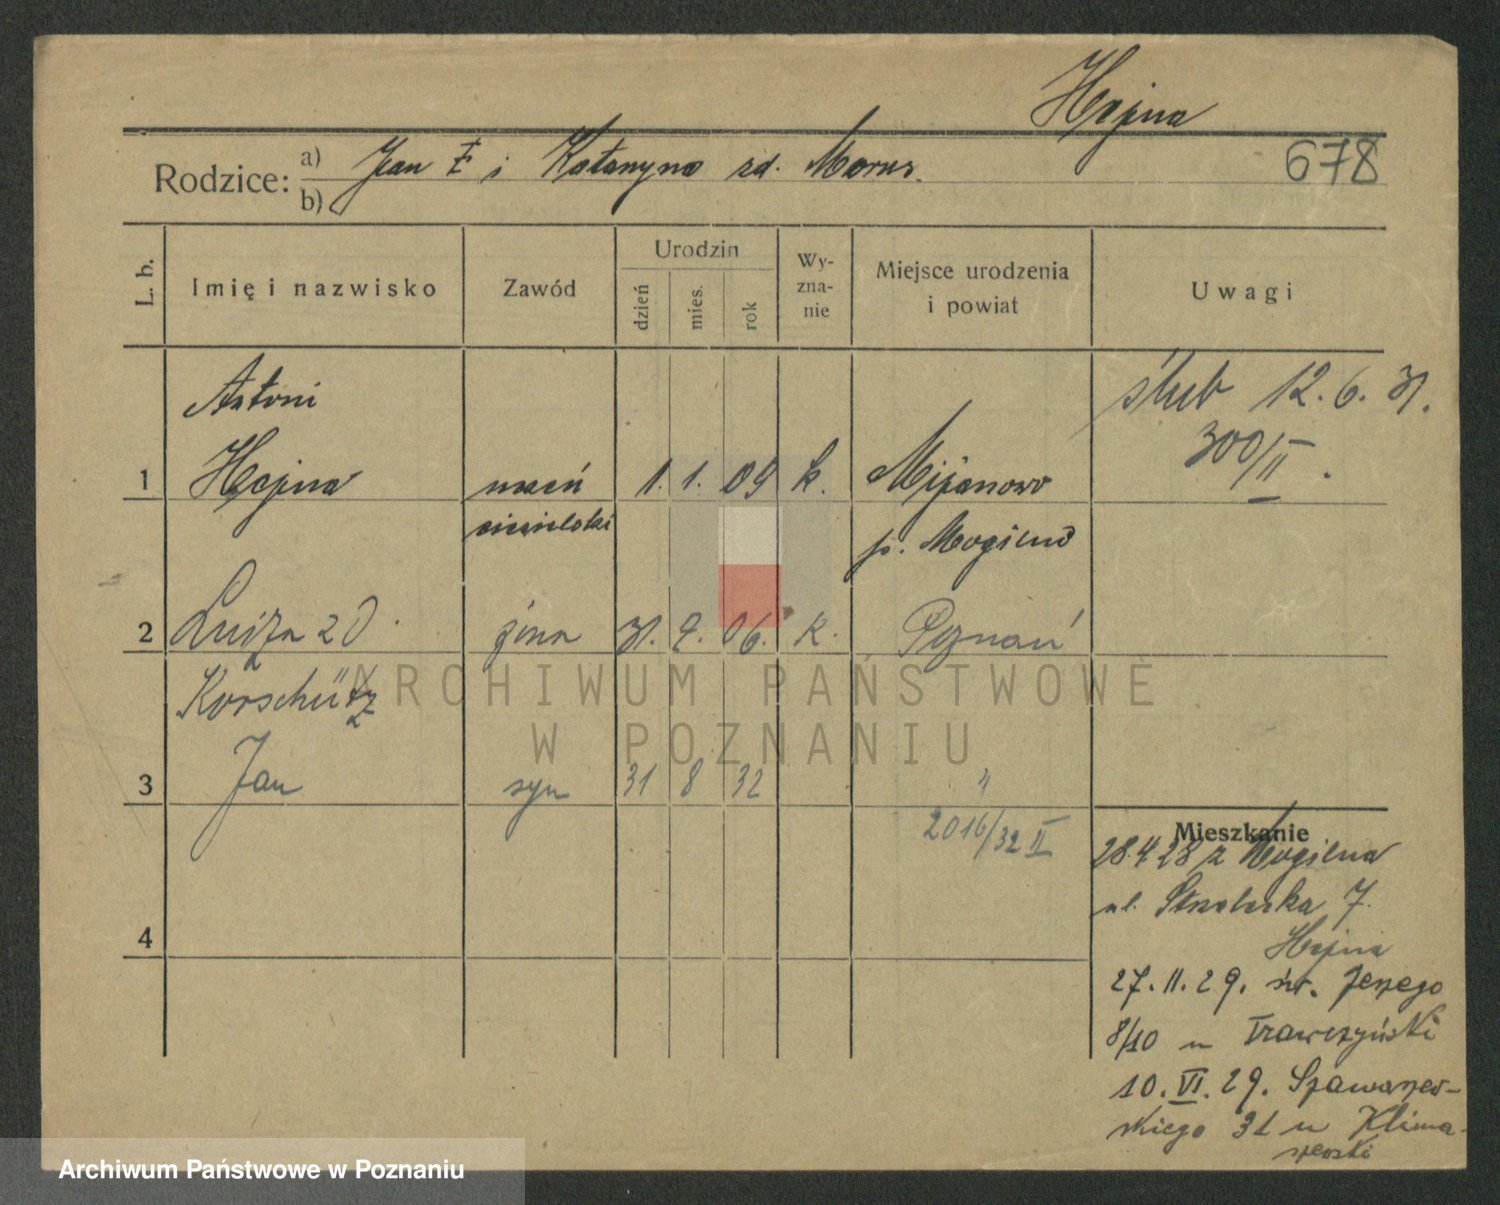 Hajna
678
Rodzice:
a) Jan i Katarzyna zd. Morus.
b)
L. b.
Imię i nazwisko
Zawód
Urodzin
dzień
mies.
rok
Wy-
zna-
nie
Miejsce urodzenia
i powiat
Uwagi
Antoni
1 Hajna uczeń 1. 1. 09 k.
ciesielski
p. Mogilno
ślub 12. 6. 31.
300/II.
2 Luiza zd. żona 31. 06. k. Poznań
Korschütz
3 Jan syn 31 8 32 "
2016/32 II
4
Mieszkanie
28.4 28 z Mogilna
ul. 7.
Hajna
27. 11. 29. św. Jerzego
8/10 u Trawczyński
10. VI. 29.
skiego 31 u Klima-
szewski
ARCHIWUM PAŃSTWOWE
W POZNANIU
Archiwum Państwowe w Poznaniu